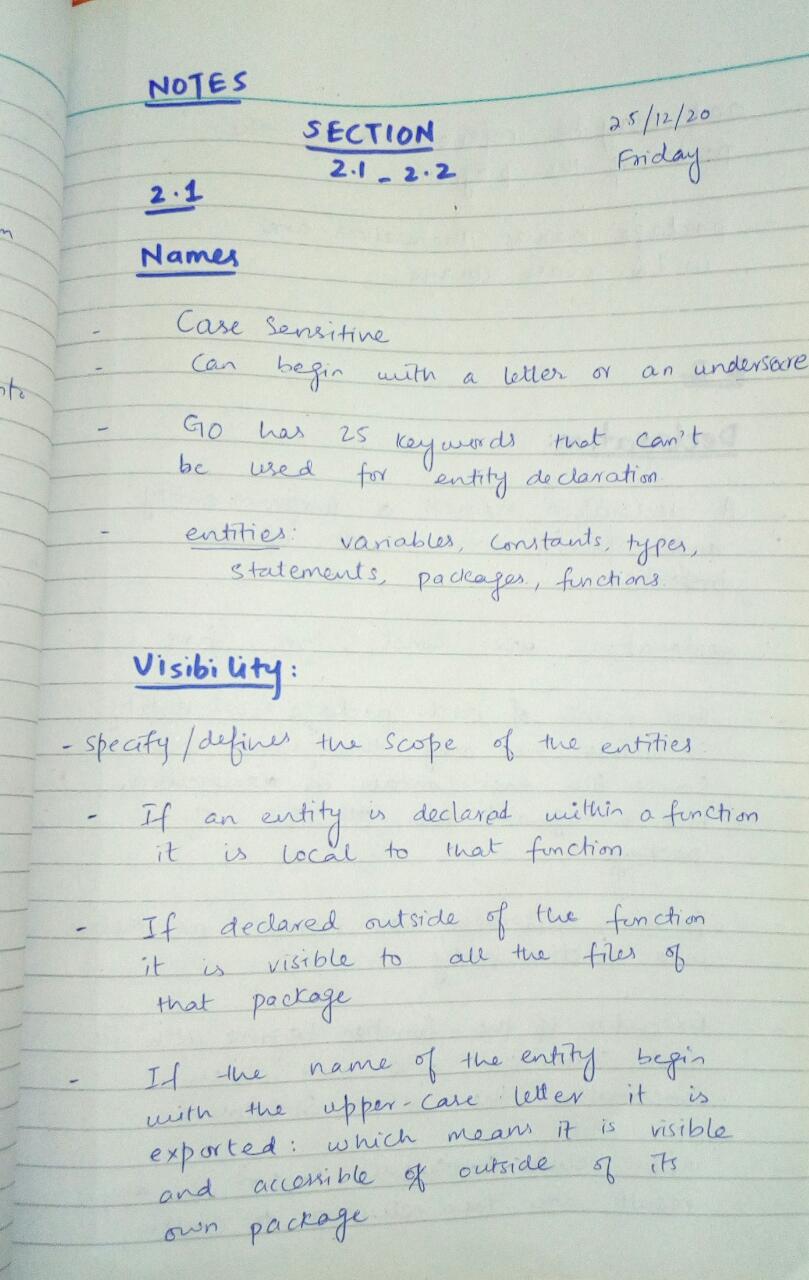 NOTES
25/12/20
SECTION
Friday
2.1 - 2.2
2.1
Names
- Case Sensitive
- Can begin with a letter or an undersocre
- GO has 25 keywords that can't
be used for entity declaration
- entities: variables, constants, types,
statements, packages, functions.
Visibility:
- specify/defines the scope of the entities
- If an entity is declared within a function
it is local to that function
- If declared outside of the function
it is visible to all the files of
that package
- If the name of the entity begin
with the upper-case letter it is
exported: which means it is visible
and accessible of outside of its
own package